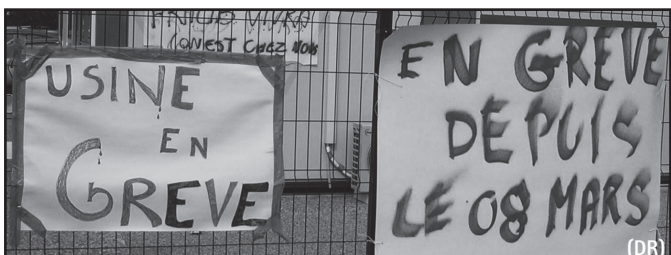 VIVRA
ON EST CHEZ NOUS
USINE
EN
GREVE
EN GREVE
DEPUIS
LE 08 MARS
(DR)